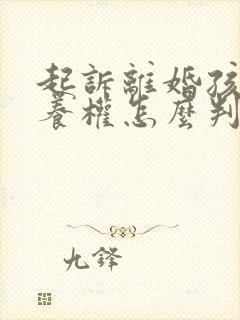 起訴離婚孩
養權怎麼判
九鋒